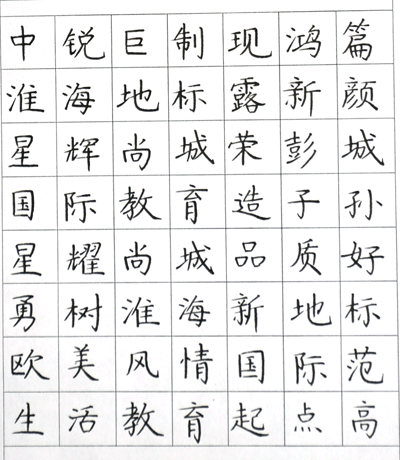 中锐巨制现鸿篇
淮海地标露新颜
星辉尚城荣彭城
国际教育造子孙
星耀尚城品质好
勇树淮海新地标
欧美风情国际范
生活教育起点高